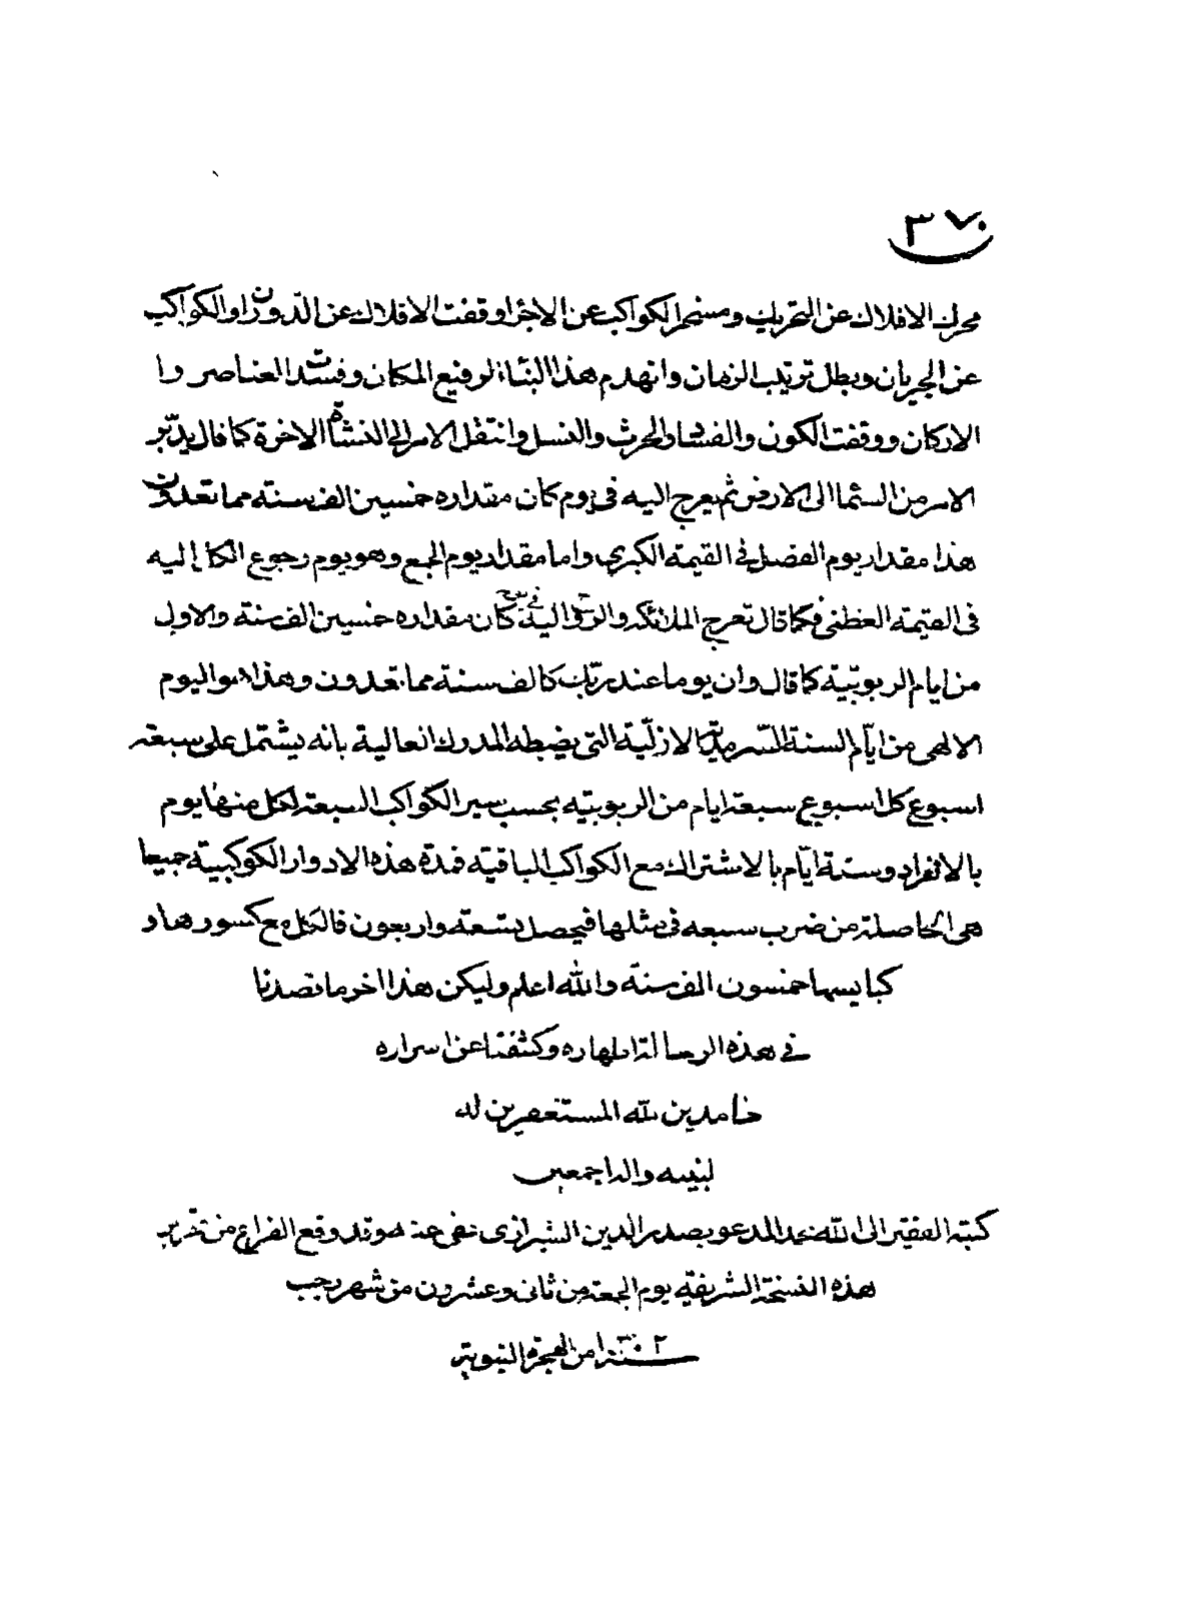 ٣٧٠
محرك الافلاك عن التحريك ومسخر الكواكب عن الاجراء وقفت الافلاك عن الدوران والكواكب
عن الجريان وبطل ترتيب الزمان وانهدم هذا البناء الرفيع المكان وفسدت العناصر و ا
الاركان ووقفت الكون والفساد والحرث والنسل وانتقل الامر الى النشأة الاخرة كما قال يدبّر
الامر من السماء الى الارض ثم يعرج اليه فى يوم كان مقداره خمسين الف سنة مما تعدون
هذا مقدار يوم الفصل فى القيمة الكبرى واما مقدار يوم الجمع وهو يوم رجوع الكل اليه
فى القيمة العظمى فكما قال تعرج الملائكة والروح اليه فى يوم كان مقداره خمسين الف سنة والاول
من ايام الربوبيّة كما قال وان يوما عند ربّك كالف سنة مما تعدون وهذا هو اليوم
الالهى من ايّام السنة السّرمديّة الازليّة التى يضبطه المدرك العالية بانه يشتمل على سبعة
اسبوع كل اسبوع سبعة ايام من الربوبيّه بحسب سير الكواكب السبعة لكل منها يوم
بالانفراد وستة ايّام بالاشتراك مع الكواكب الباقية فمدة هذه الادوار الكوكبيّة جميعا
هى الحاصلة من ضرب سبعه فى مثلها فيحصل تسعة واربعون فالكل مع كسورها و
كبايسها خمسون الف سنة والله اعلم وليكن هذا اخر ما قصدنا
فى هذه الرسالة اظهاره وكشفنا عن اسراره
حامدين لله المستغفرين له
لنبيه واله اجمعين
كتبه الفقير الى الله محمد المدعو بصدر الدين الشيرازى عفى عنه هو قد وقع الفراغ من تحرير
هذه النسخة الشريفة يوم الجمعة من ثانى وعشرون من شهر رجب
من الهجرة النبوية